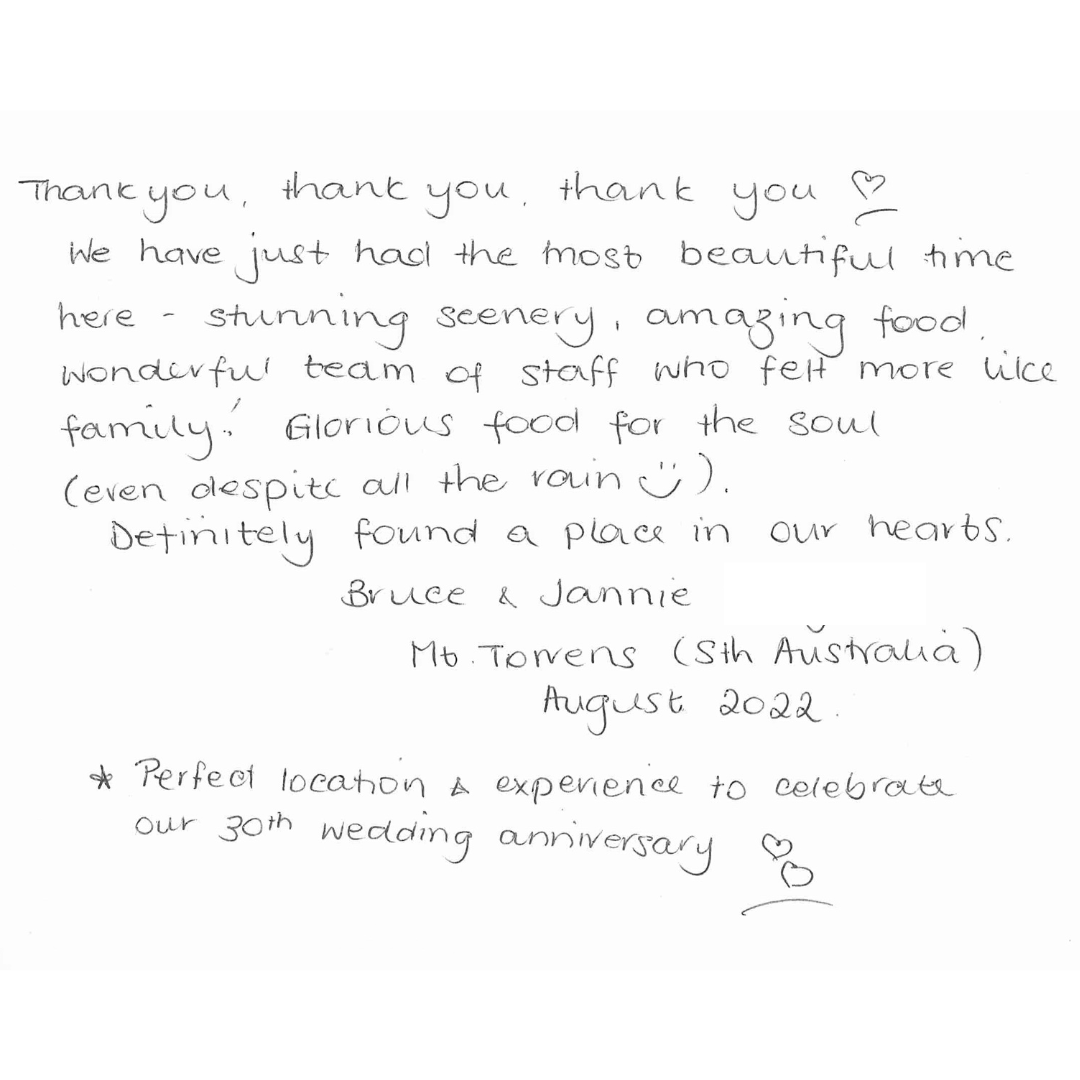 Thank you, thank you, thank you ♡
We have just had the most beautiful time
here - stunning scenery, amazing food,
wonderful team of staff who felt more like
family! Glorious food for the soul
(even despite all the rain ☺).
Definitely found a place in our hearts.
Bruce & Jannie
Mt. Torrens (Sth Australia)
August 2022.
* Perfect location & experience to celebrate
our 30th wedding anniversary ♡♡